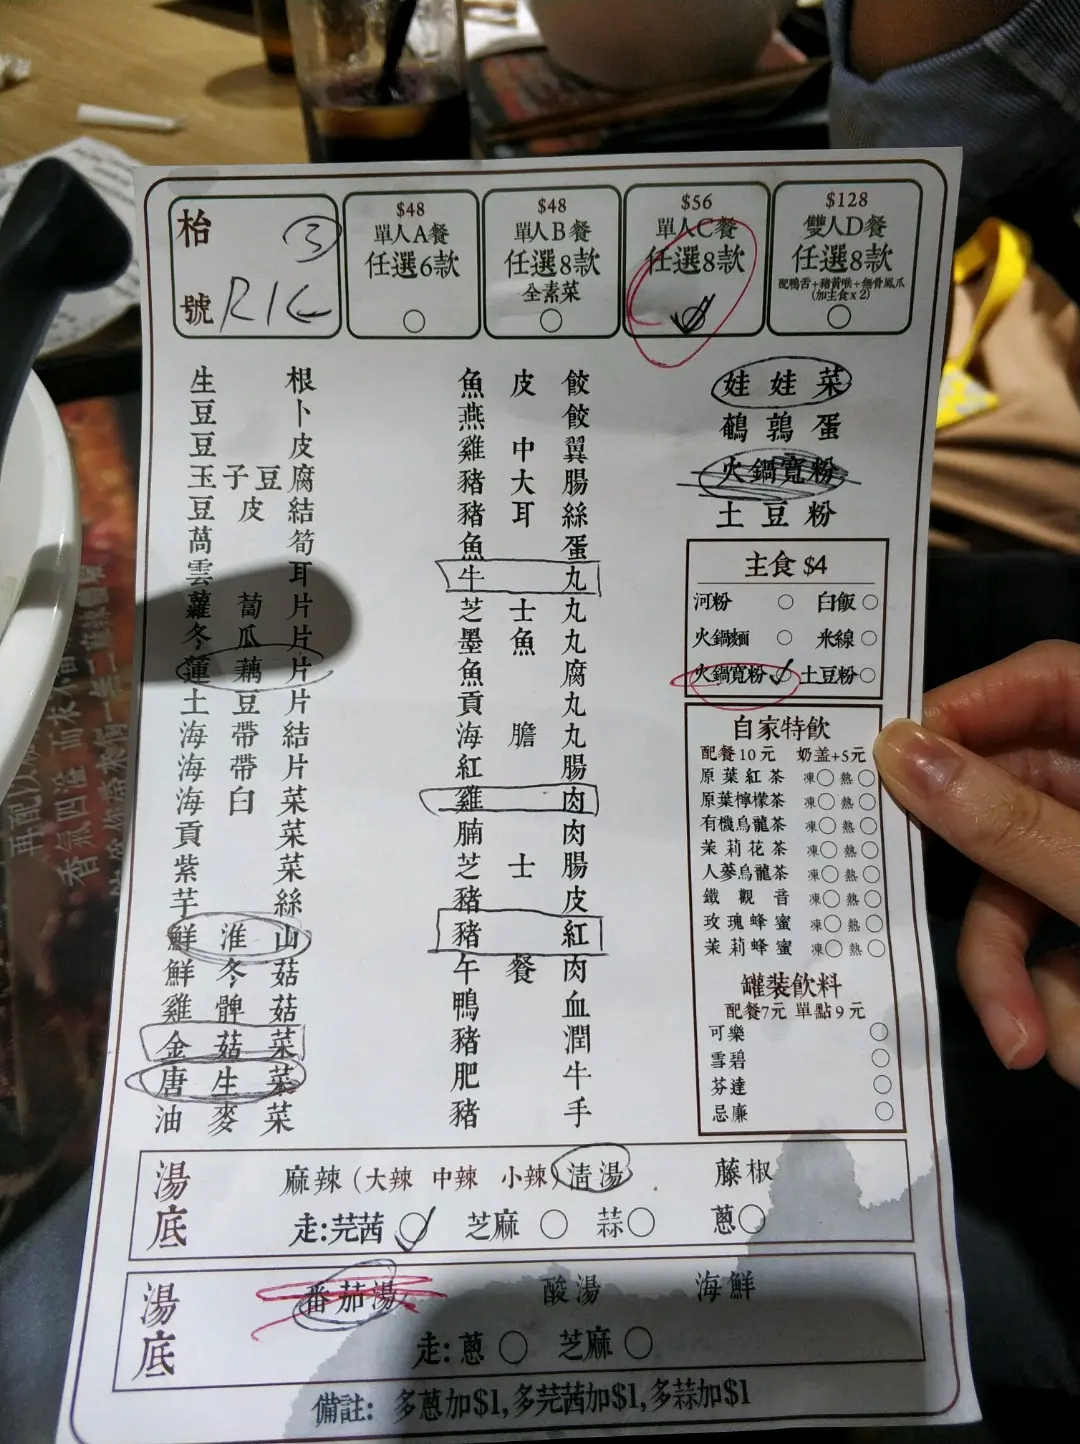 枱號
③
R1C
$48
單人A餐
任選6款
○
$48
單人B餐
任選8款
全素菜
○
$56
單人C餐
任選8款
$128
雙人D餐
任選8款
配鴨舌+豬黃喉+無骨鳳爪
(加主食x2)
○
生根
豆卜
豆皮
玉子豆腐
豆皮結
萵筍
雲耳
蘿蔔片
冬瓜片
蓮藕片
土豆片
海帶結
海帶片
海白菜
貢菜
紫菜
芋絲
鮮淮山
鮮冬菇
雞髀菇
金菇菜
唐生菜
油麥菜
魚皮餃
燕餃
雞中翼
豬大腸
豬耳絲
魚蛋
牛丸
芝士丸
墨魚丸
魚腐
貢丸
海膽丸
紅腸
雞肉
腩肉
芝士腸
豬皮
豬紅
午餐肉
鴨血
豬潤
肥牛
豬手
娃娃菜
鵪鶉蛋
火鍋寬粉
土豆粉
主食 $4
河粉 ○ 白飯 ○
火鍋麵 ○ 米線 ○
火鍋寬粉 ○ 土豆粉 ○
自家特飲
配餐10元 奶盖+5元
原葉紅茶 凍○ 熱○
原葉檸檬茶 凍○ 熱○
有機烏龍茶 凍○ 熱○
茉莉花茶 凍○ 熱○
人蔘烏龍茶 凍○ 熱○
鐵觀音 凍○ 熱○
玫瑰蜂蜜 凍○ 熱○
茉莉蜂蜜 凍○ 熱○
罐裝飲料
配餐7元 單點9元
可樂 ○
雪碧 ○
芬達 ○
忌廉 ○
湯底
麻辣(大辣 中辣 小辣) 清湯 藤椒
走:芫茜 ○ 芝麻 ○ 蒜 ○ 蔥 ○
湯底
番茄湯 酸湯 海鮮
走:蔥 ○ 芝麻 ○
備註: 多蔥加$1,多芫茜加$1,多蒜加$1